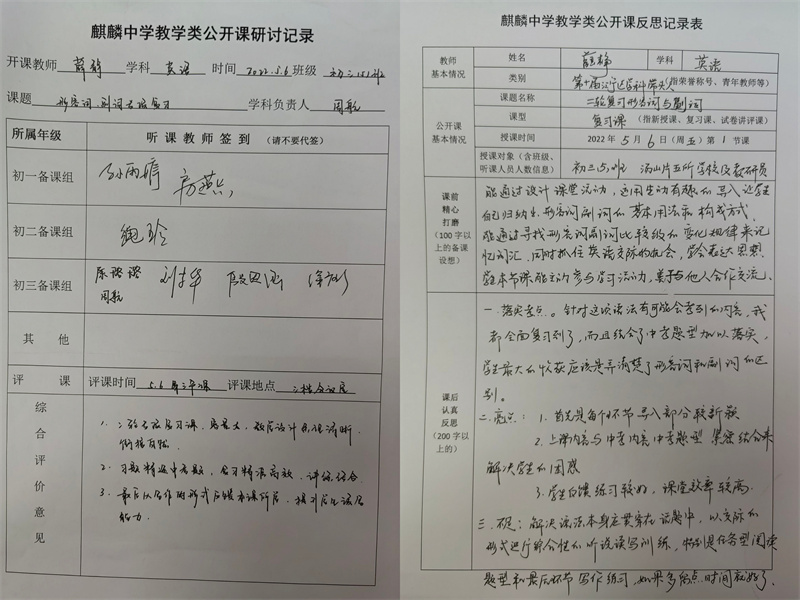 麒麟中学教学类公开课研讨记录
开课教师 薛静 学科 英语 时间 2022.5.6 班级 初三(5)班
课题 形容词、副词二轮复习 学科负责人 周航
所属年级 听课教师签到 (请不要代签)
初一备课组
初二备课组
初三备课组
周航
其 他
评 课 评课时间 5.6 第三节课 评课地点 二楼会议室
综合评价意见
1. 二轮复习课,容量大,教学设计思路清晰,
2. 习题精选中考题,复习精准高效,讲练结合
3. 最后以写作的形式反馈本课所学,提升学生语言
能力.
麒麟中学教学类公开课反思记录表
教师基本情况
姓名 薛静 学科 英语
类别 (指荣誉称号、青年教师等)
公开课基本情况
课题名称 二轮复习形容词与副词
课型 复习课 (指新授课、复习课、试卷讲评课)
授课时间 2022 年 5 月 6 日 (周五) 第 1 节课
授课对象(含班级、听课人员人数信息) 初三(5)班 汤山片五所学校及教研员
课前精心打磨(100字以上的备课设想)
能通过设计课堂活动,运用生动有趣的导入让学生
自己归纳出形容词副词的基本用法和构成方式.
能通过寻找形容词副词比较级的变化规律来记
忆词汇,同时抓住英语交际的机会,学会表达思想.
学生本节课能主动参与学习活动,善于与他人合作交流.
课后认真反思(200字以上的)
一. 落实考点。针对这项语法有可能会考到的内容,我
都全面复习到了,而且结合了中考题型加以落实,
学生最大的收获应该是弄清楚了形容词和副词的区
别。
二. 亮点: 1. 首先是每个环节导入部分较新颖
2. 上课内容与中考内容中考题型紧密结合来
解决学生的困惑
3. 学生反馈练习较好,课堂效率较高.
三. 不足: 解决语法本身应贯穿在话题中,以交际的
形式进行综合性的听说读写训练,特别是任务型阅读
题型和最后环节写作练习,如果多留点时间就好了.